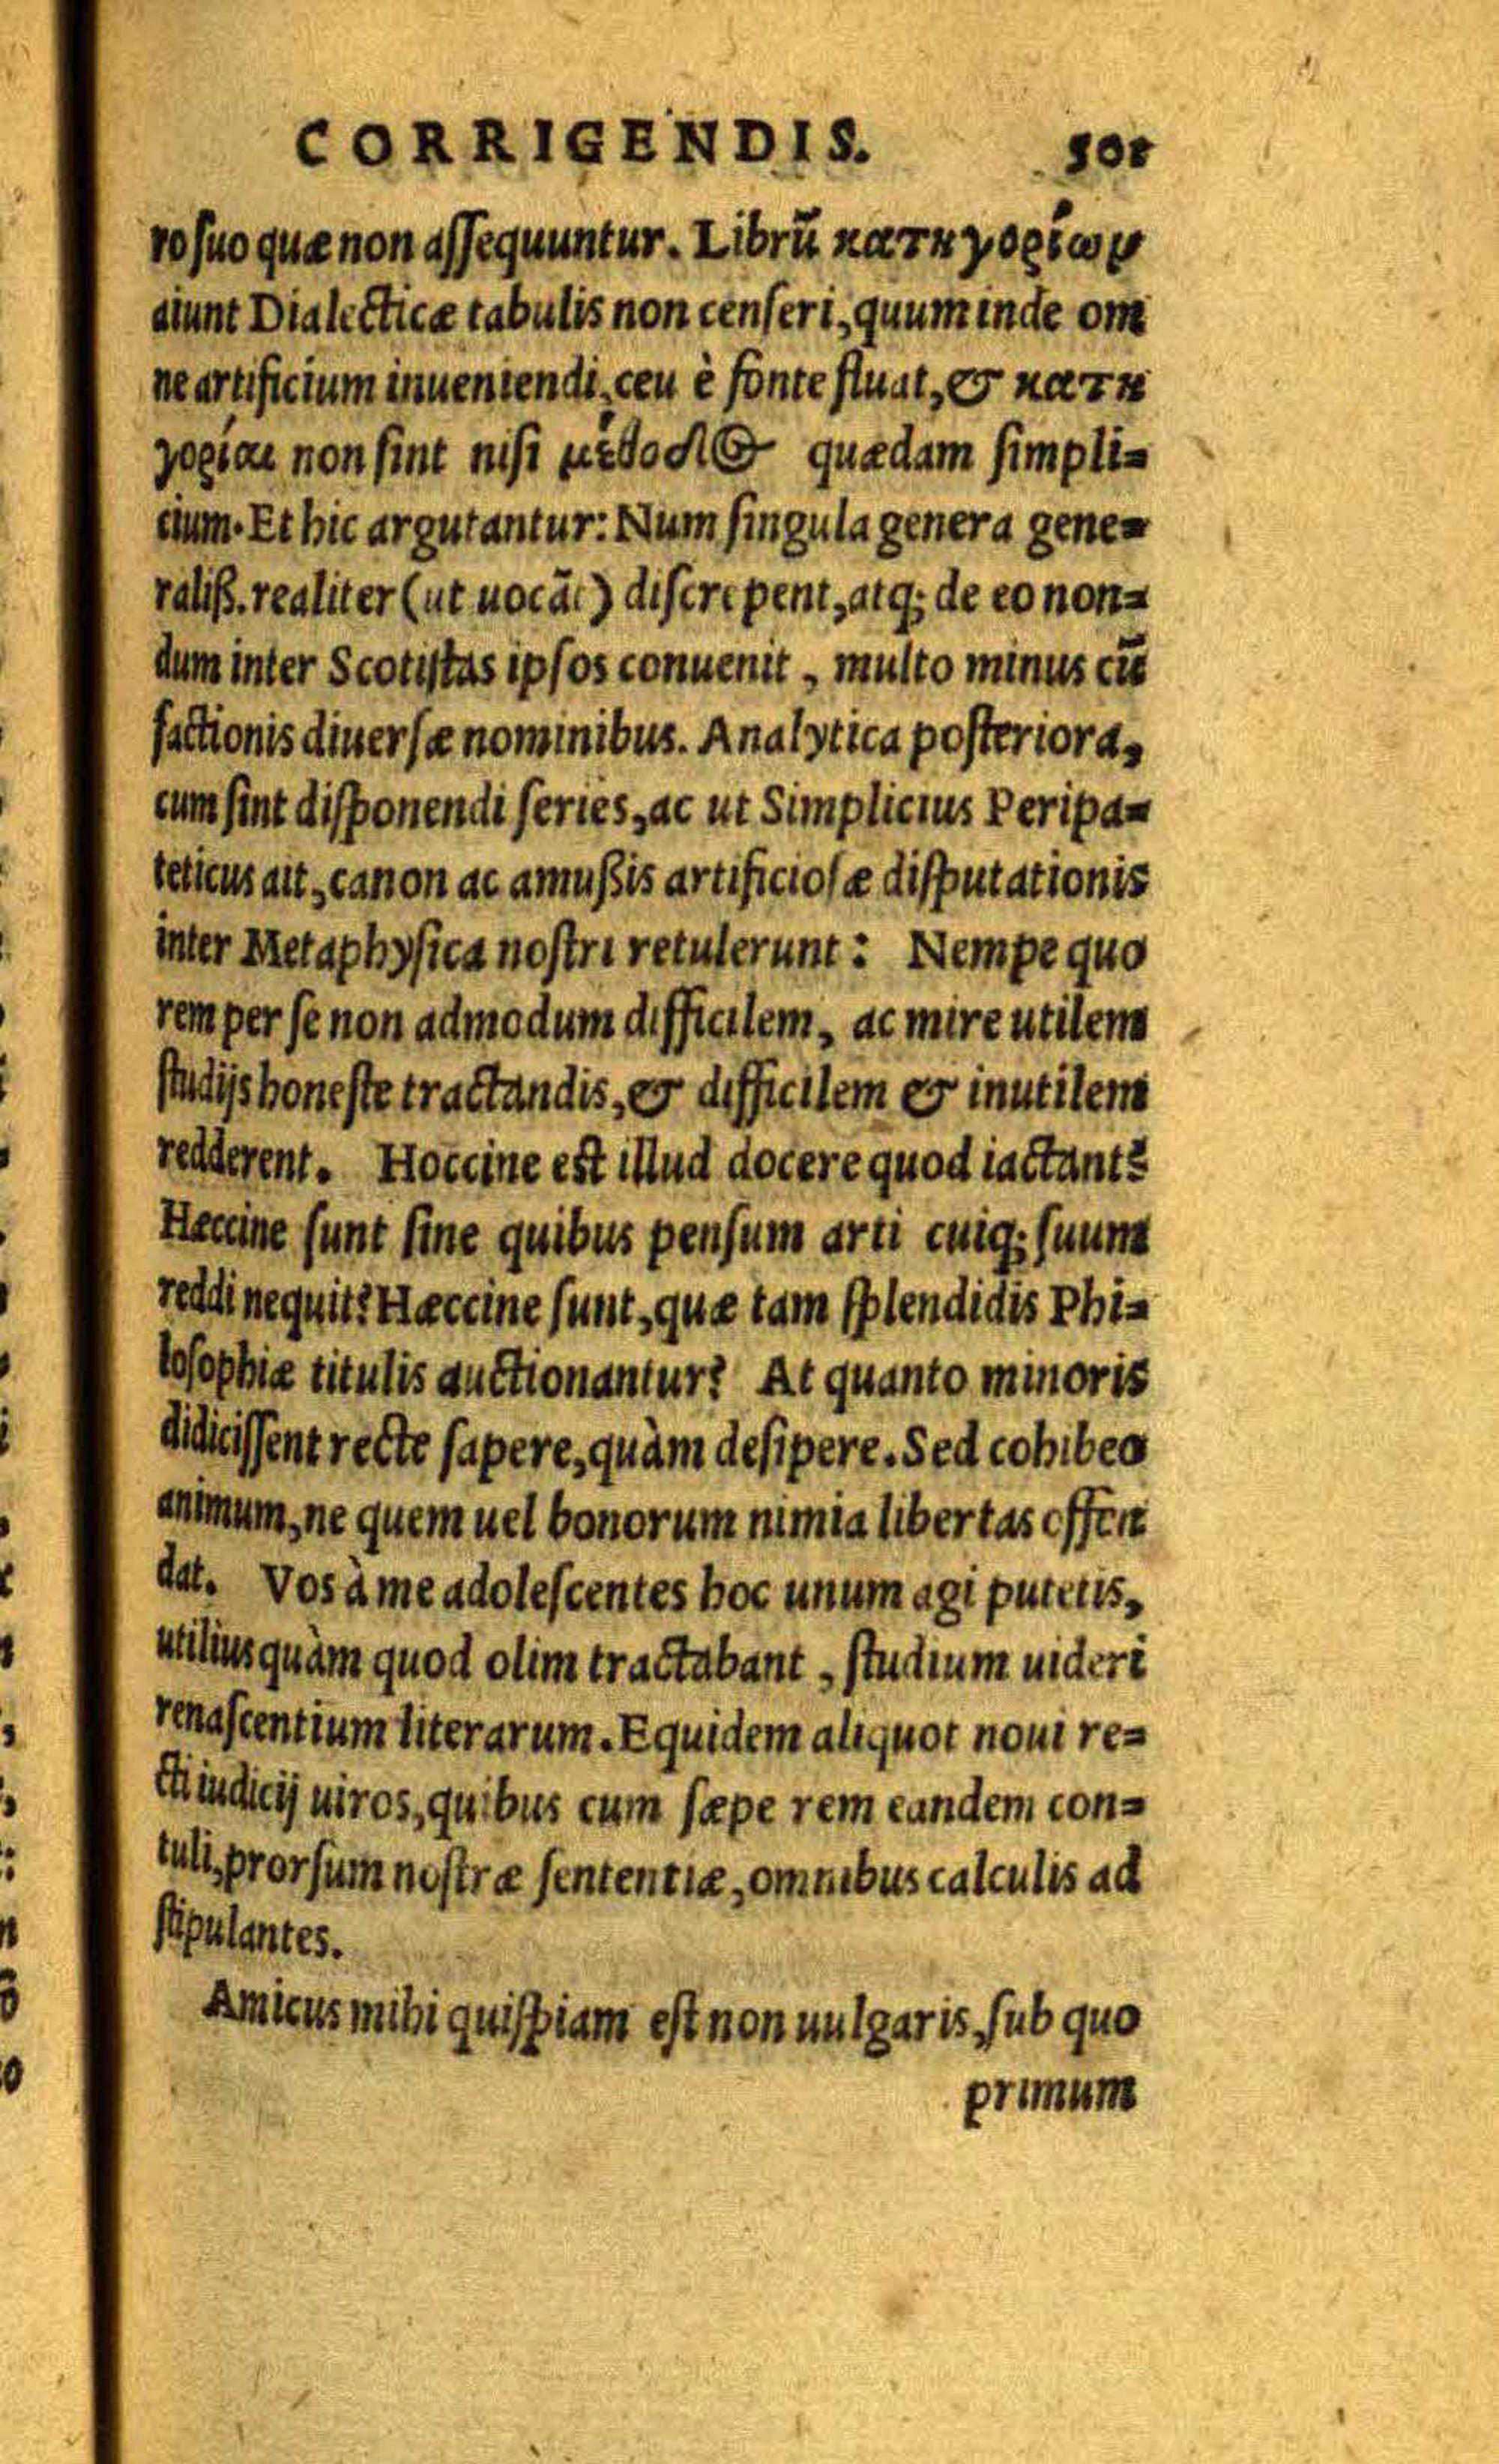 CORRIGENDIS. 501
ro ſuo quæ non aſſequuntur. Librū κατηγορίωμ
aiunt Dialecticæ tabulis non cenſeri, quum inde om
ne artificium inueniendi, ceu è fonte fluat, & κατη
γορίαι non ſint niſi μέθοδος quædam ſimpli=
cium. Et hic argutantur: Num ſingula genera gene=
raliß. realiter (ut uocāt) diſcrepent, atq; de eo non=
dum inter Scotiſtas ipſos conuenit, multo minus cū
factionis diuerſæ nominibus. Analytica poſteriora,
cum ſint diſponendi ſeries, ac ut Simplicius Peripa=
teticus ait, canon ac amußis artificioſæ diſputationis
inter Metaphyſica noſtri retulerunt: Nempe quo
rem per ſe non admodum difficilem, ac mire utilem
ſtudijs honeſte tractandis, & difficilem & inutilem
redderent. Hoccine eſt illud docere quod iactant?
Hæccine ſunt ſine quibus penſum arti cuiq; ſuum
reddi nequit? Hæccine ſunt, quæ tam ſplendidis Phi=
loſophiæ titulis auctionantur? At quanto minoris
didiciſſent recte ſapere, quàm deſipere. Sed cohibeo
animum, ne quem uel bonorum nimia libertas offen
dat. Vos à me adoleſcentes hoc unum agi putetis,
utilius quàm quod olim tractabant, ſtudium uideri
renaſcentium literarum. Equidem aliquot noui re=
cti iudicij uiros, quibus cum ſæpe rem eandem con=
tuli, prorſum noſtræ ſententiæ, omnibus calculis ad
ſtipulantes.
Amicus mihi quiſpiam eſt non uulgaris, ſub quo
primum